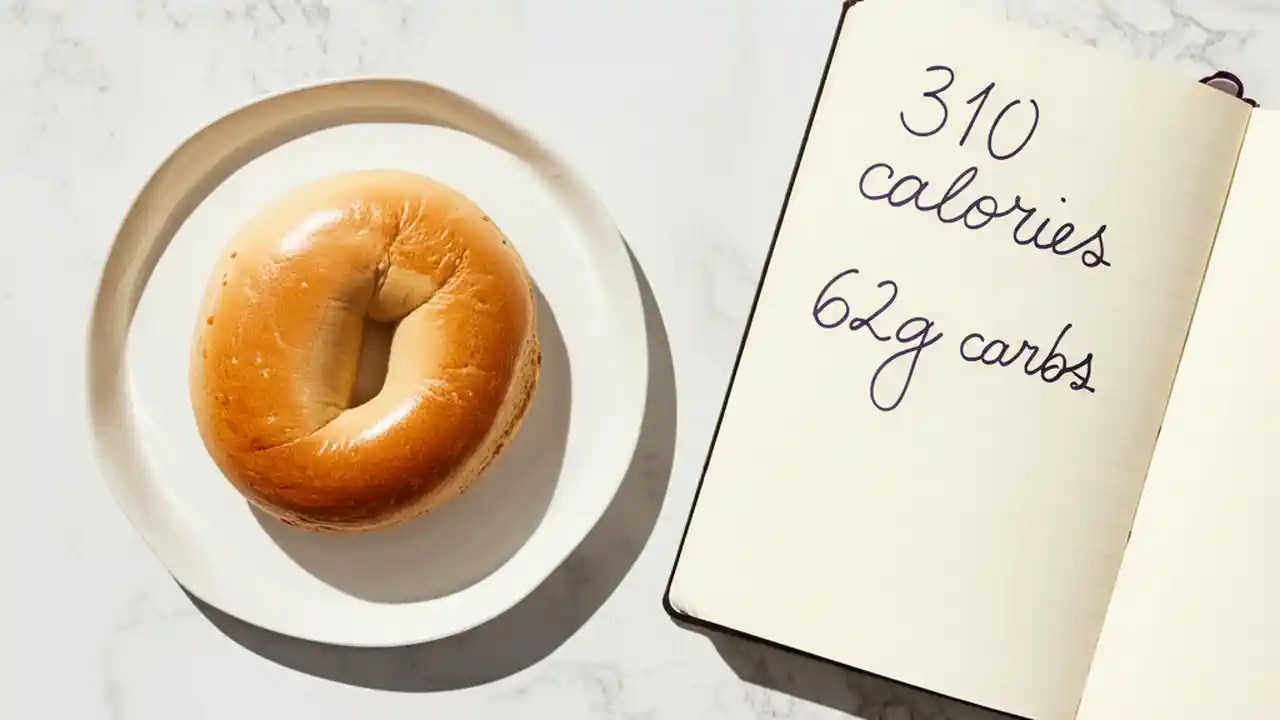 310
calories
62g carbs